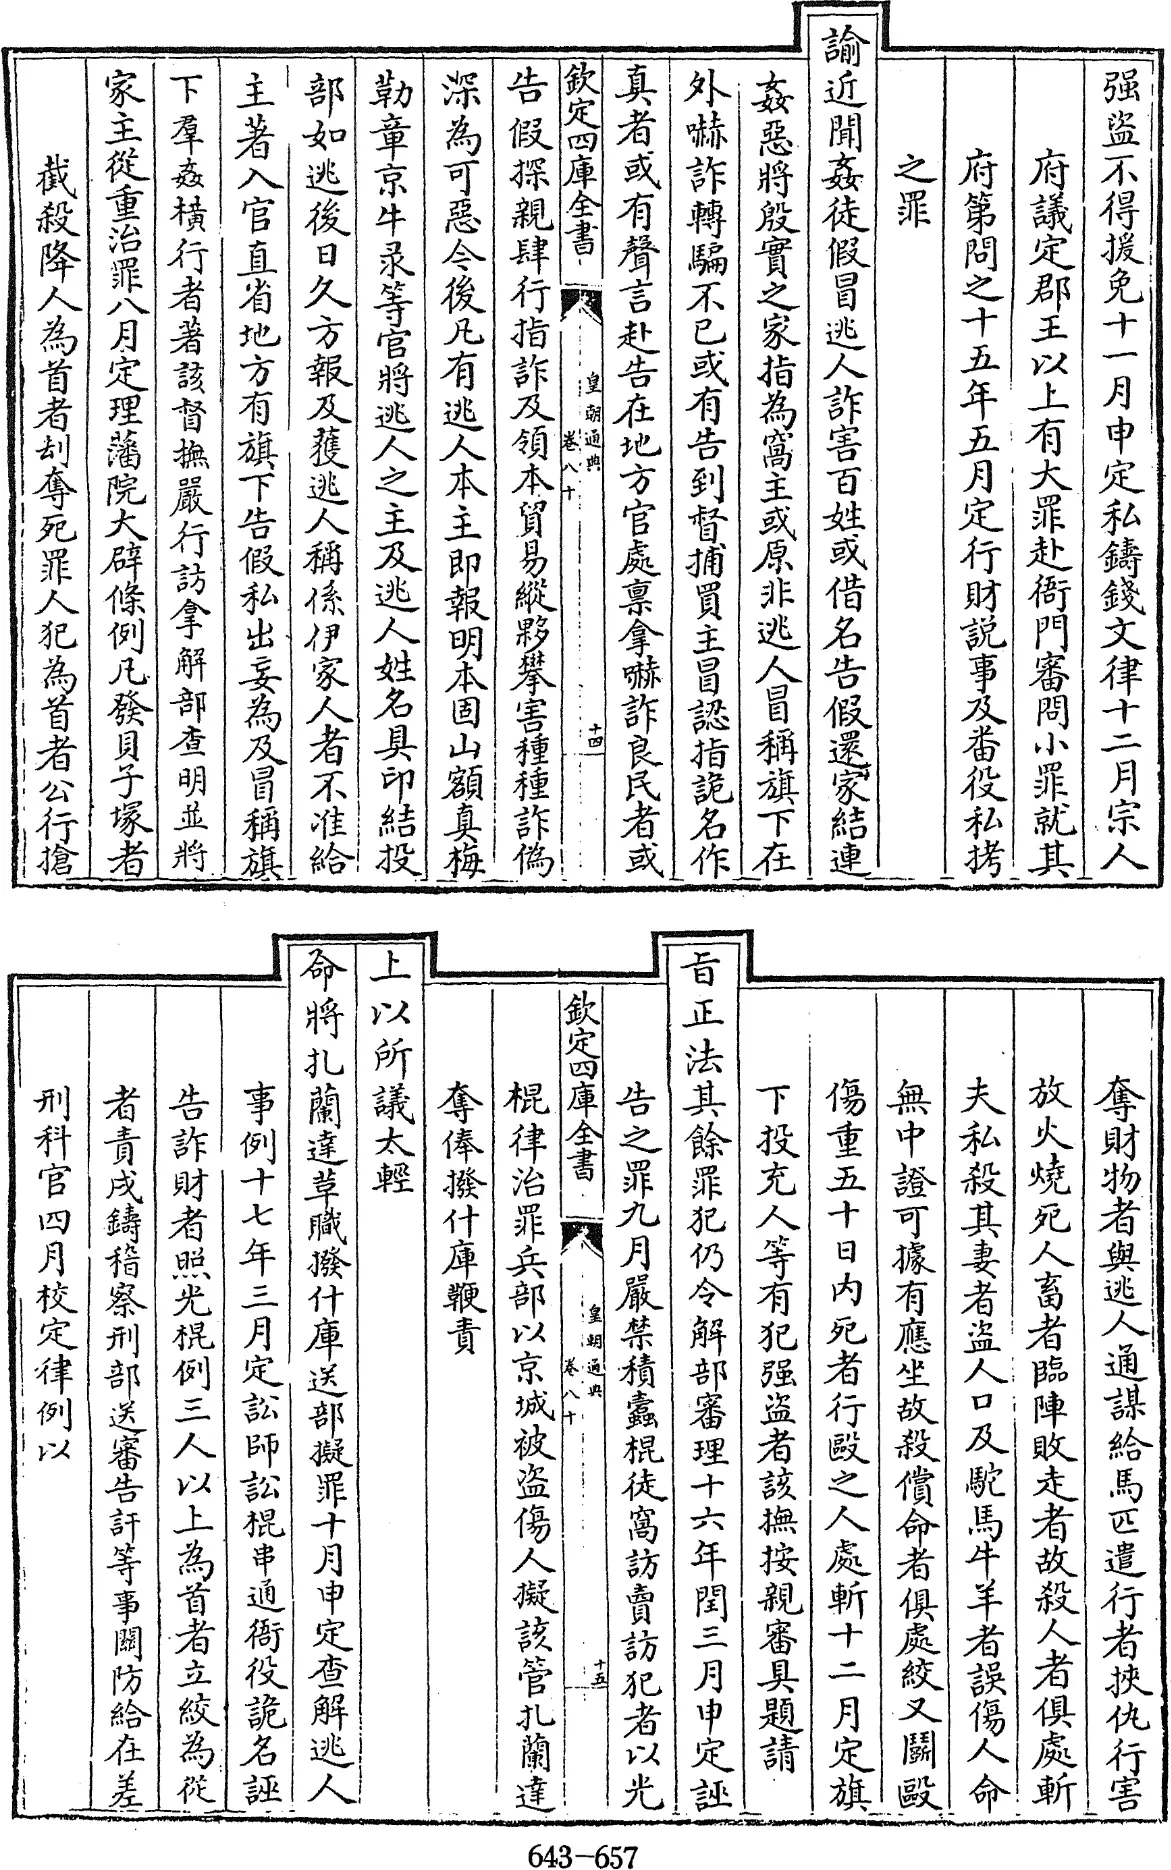 强盜不得援免十一月申定私鑄錢文律十二月宗人
府議定郡王以上有大罪赴衙門審問小罪就其
府第問之十五年五月定行財說事及番役私拷
之罪
諭近聞姦徒假冒逃人詐害百姓或借名告假還家結連
姦惡將殷實之家指為窩主或原非逃人冒稱旗下在
外嚇詐轉騙不已或有告到督捕買主冒認指詭名作
真者或有聲言赴告在地方官處禀拿嚇詐良民者或
欽定四庫全書
皇朝通典
卷八十
十四
告假探親肆行指詐及領本貿易縱夥攀害種種詐僞
深為可惡今後凡有逃人本主即報明本固山額真梅
勒章京牛录等官將逃人之主及逃人姓名具印結投
部如逃後日久方報及獲逃人稱係伊家人者不准給
主著入官直省地方有旗下告假私出妄為及冒稱旗
下羣姦橫行者著該督撫嚴行訪拿解部查明並將
家主從重治罪八月定理藩院大辟條例凡發貝子塚者
截殺降人為首者刦奪死罪人犯為首者公行搶
奪財物者與逃人通謀給馬匹遣行者挾仇行害
放火燒死人畜者臨陣敗走者故殺人者俱處斬
夫私殺其妻者盜人口及駝馬牛羊者誤傷人命
無中證可據有應坐故殺償命者俱處絞又鬭毆
傷重五十日内死者行毆之人處斬十二月定旗
下投充人等有犯强盜者該撫按親審具題請
旨正法其餘罪犯仍令解部審理十六年閏三月申定誣
告之罪九月嚴禁積蠹棍徒窩訪賣訪犯者以光
欽定四庫全書
皇朝通典
卷八十
十五
棍律治罪兵部以京城被盜傷人擬該管扎蘭達
奪俸撥什庫鞭責
上以所議太輕
命將扎蘭達草職撥什庫送部擬罪十月申定查解逃人
事例十七年三月定訟師訟棍串通衙役詭名誣
告詐財者照光棍例三人以上為首者立絞為從
者責戍鑄稽察刑部送審告訐等事關防給在差
刑科官四月校定律例以